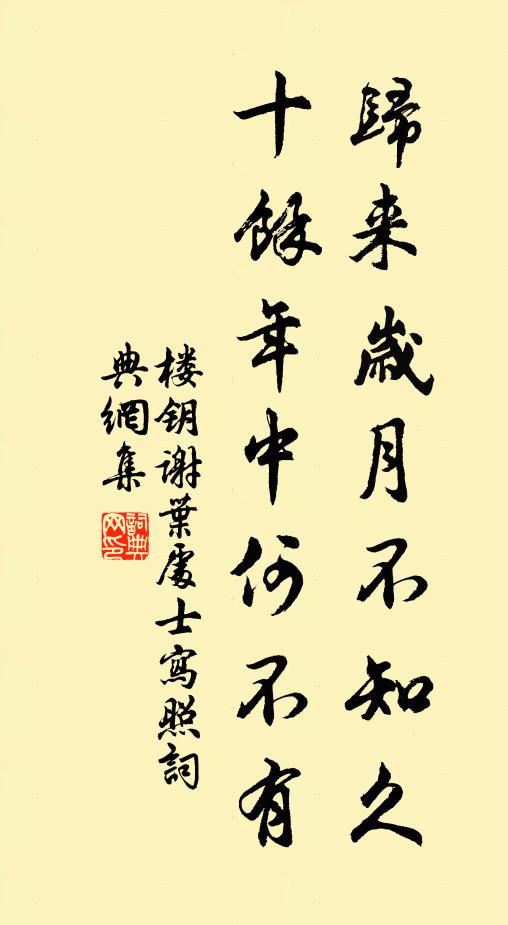 歸来歲月不知久
十餘年中何不有
楼钥謝葉處士寫照詞
典網集
詞典网印